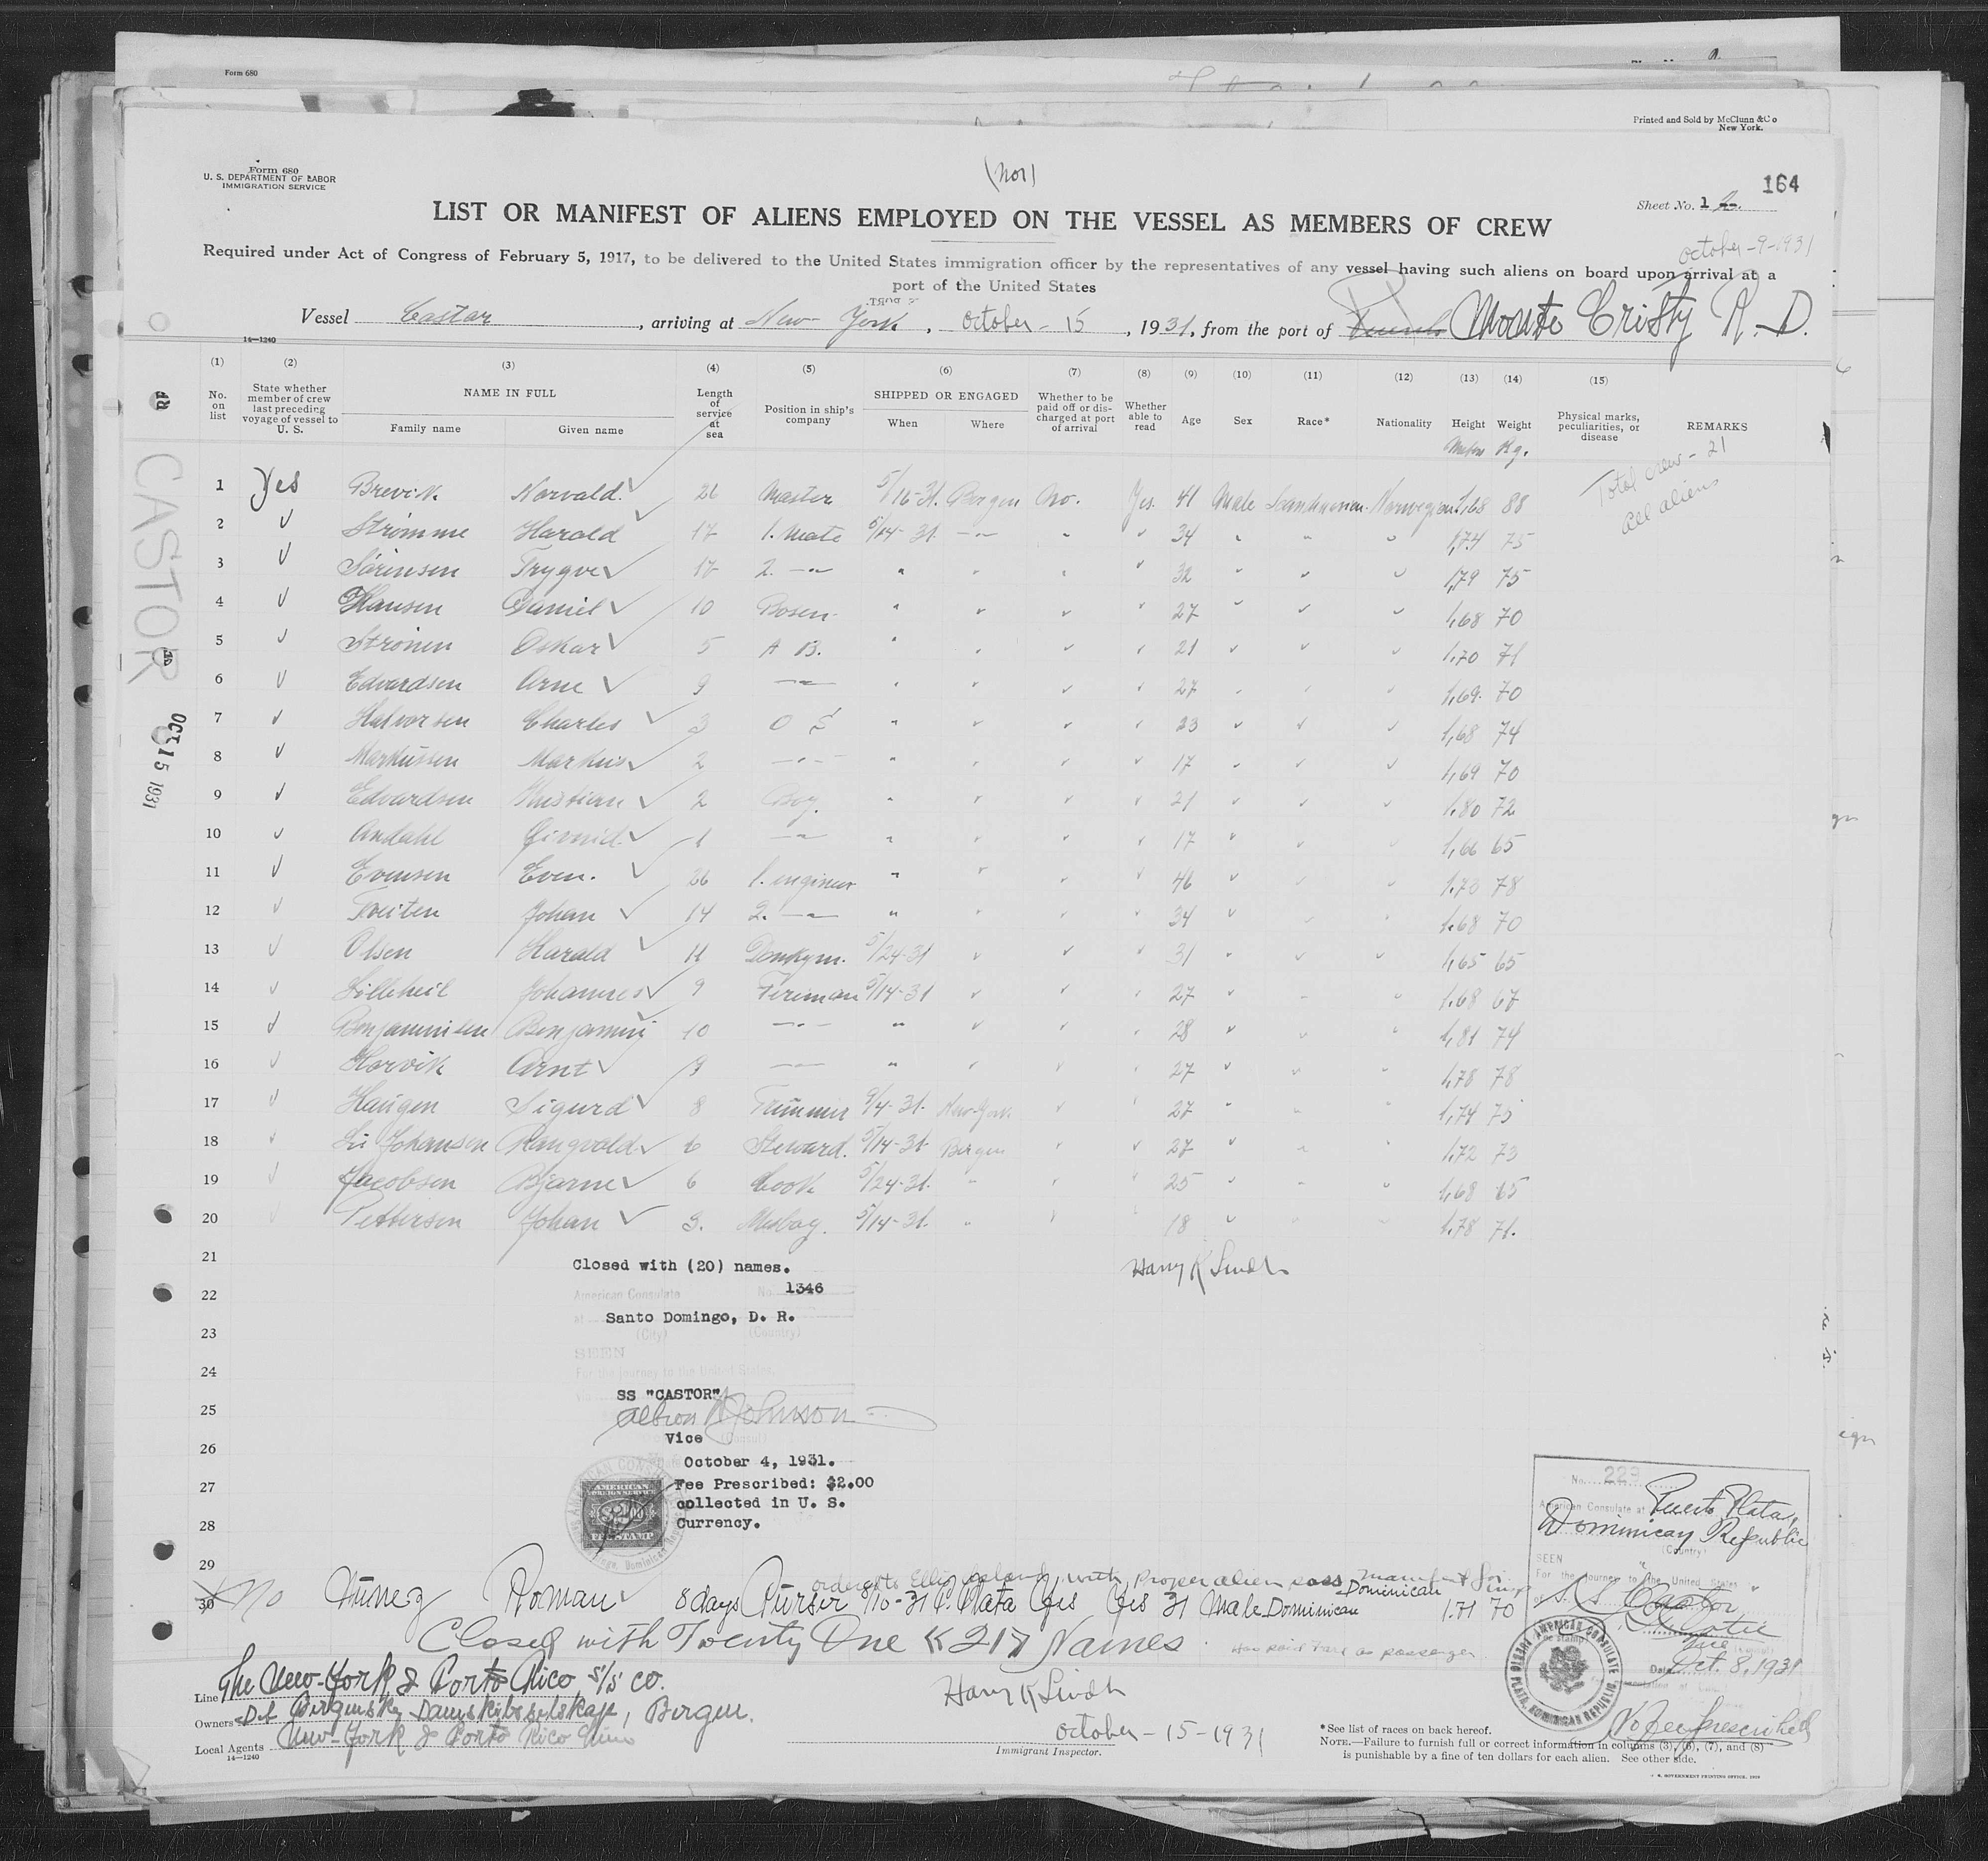 Form 680
Printed and Sold by McClunn & Co
New York.
Form 680
U. S. DEPARTMENT OF LABOR
IMMIGRATION SERVICE
(Nor)
164
Sheet No. 1
LIST OR MANIFEST OF ALIENS EMPLOYED ON THE VESSEL AS MEMBERS OF CREW
October-9-1931
Required under Act of Congress of February 5, 1917, to be delivered to the United States immigration officer by the representatives of any vessel having such aliens on board upon arrival at a
port of the United States
Vessel Castor, arriving at New-York, October-15, 1931, from the port of Monte Cristy R.D.
14—1240
(1) (2) (3) (4) (5) (6) (7) (8) (9) (10) (11) (12) (13) (14) (15)
No. on list
State whether member of crew last preceding voyage of vessel to U. S.
NAME IN FULL
Family name Given name
Length of service at sea
Position in ship's company
SHIPPED OR ENGAGED
When Where
Whether to be paid off or discharged at port of arrival
Whether able to read
Age Sex Race* Nationality Height Weight
Kg.
Physical marks, peculiarities, or disease
REMARKS
Total crew - 21
all aliens
CASTOR
OCT 15 1931
1 Yes Brevik Norvald 26 Master 5/16-31. Bergen No. Yes. 41 Male Scandinavian Norwegian 1,68 88
2 √ Strømme Harald 17 1. Mate 5/14-31 -"- " √ 34 " " " 1,74 75
3 √ Sørensen Trygve 17 2. -"- " " " " 32 " √ √ 1,79 75
4 √ Hansen Daniel 10 Bosen " √ √ √ 27 √ √ √ 1,68 70
5 √ Strønen Oskar 5 A B. " √ √ √ 21 √ √ √ 1,70 71
6 √ Edvardsen Arne 9 -"- " √ √ √ 27 " " √ 1,69 70
7 √ Halvorsen Charles 3 O S " √ √ √ 23 √ √ √ 1,68 74
8 √ Markussen Markus 2 -"- " √ √ √ 17 √ √ √ 1,69 70
9 √ Edvardsen Kristian 2 Boy. " √ √ √ 21 √ √ √ 1,80 72
10 √ Andahl 1 -"- " √ √ √ 17 √ √ √ 1,66 65
11 √ Evensen Even. 26 1. engineer " √ √ √ 46 √ √ √ 1,73 78
12 √ Tveiten Johan 14 2. -"- " " √ √ 34 √ √ √ 1,68 70
13 √ Olsen Harald 11 Donkym. 5/24-31 √ √ √ 31 √ √ √ 1,65 65
14 √ Lilleheil Johannes 9 Fireman 5/14-31 √ √ √ 27 √ " " 1,68 67
15 √ Benjaminsen Benjamin 10 -"- " √ √ √ 28 √ " " 1,81 74
16 √ Horvik Arnt 9 -"- " √ √ √ 27 √ " " 1,78 78
17 √ Haugen Sigurd 8 Trimmer 9/4-31. New-York √ √ 27 " " " 1,74 75
18 √ Li Johansen Rangvald 6 Steward. 5/14-31 Bergen √ √ 27 √ " " 1,72 73
19 √ Jacobsen Bjarne 6 Cook 5/24-31. " √ √ 25 √ " " 1,68 65
20 √ Pettersen Johan 3. Messboy. 5/14-31. " √ √ 18 √ " " 1,78 71.
21
22
23
24
25
26
27
28
29
Closed with (20) names.
Harry K Lindh
American Consulate No. 1346
at Santo Domingo, D. R.
(City) (Country)
SEEN
For the journey to the United States.
SS "CASTOR"
Albion W Johnson
Vice (Consul)
October 4, 1931.
Fee Prescribed: $2.00
collected in U. S.
Currency.
AMERICAN
FOREIGN SERVICE
$2.00
FEE STAMP
ordered to Ellis Island with proper alien pass manifest
30 No Nunez Roman 8 days Purser 8/10-31 P. Plata Yes Yes 31 Male Dominican Dominican 1.71 70
Closed with Twenty One «21» Names.
Has paid fare as passenger
Line The New-York & Porto Rico s/s co.
Owners Det Bergenske Dampskibsselskap, Bergen.
Local Agents New-York & Porto Rico Line
14—1240
Harry K Lindh
October-15-1931
Immigrant Inspector.
No. 223
American Consulate at Puerto Plata,
Dominican Republic
(Country)
SEEN
For the journey to the United States
S.S. Castor
Vice
Date Oct. 8, 1931
No fee prescribed
AMERICAN CONSULATE
PUERTO PLATA, DOMINICAN REPUBLIC
*See list of races on back hereof.
NOTE.—Failure to furnish full or correct information in columns (3), (6), (7), and (8)
is punishable by a fine of ten dollars for each alien. See other side.
U. S. GOVERNMENT PRINTING OFFICE